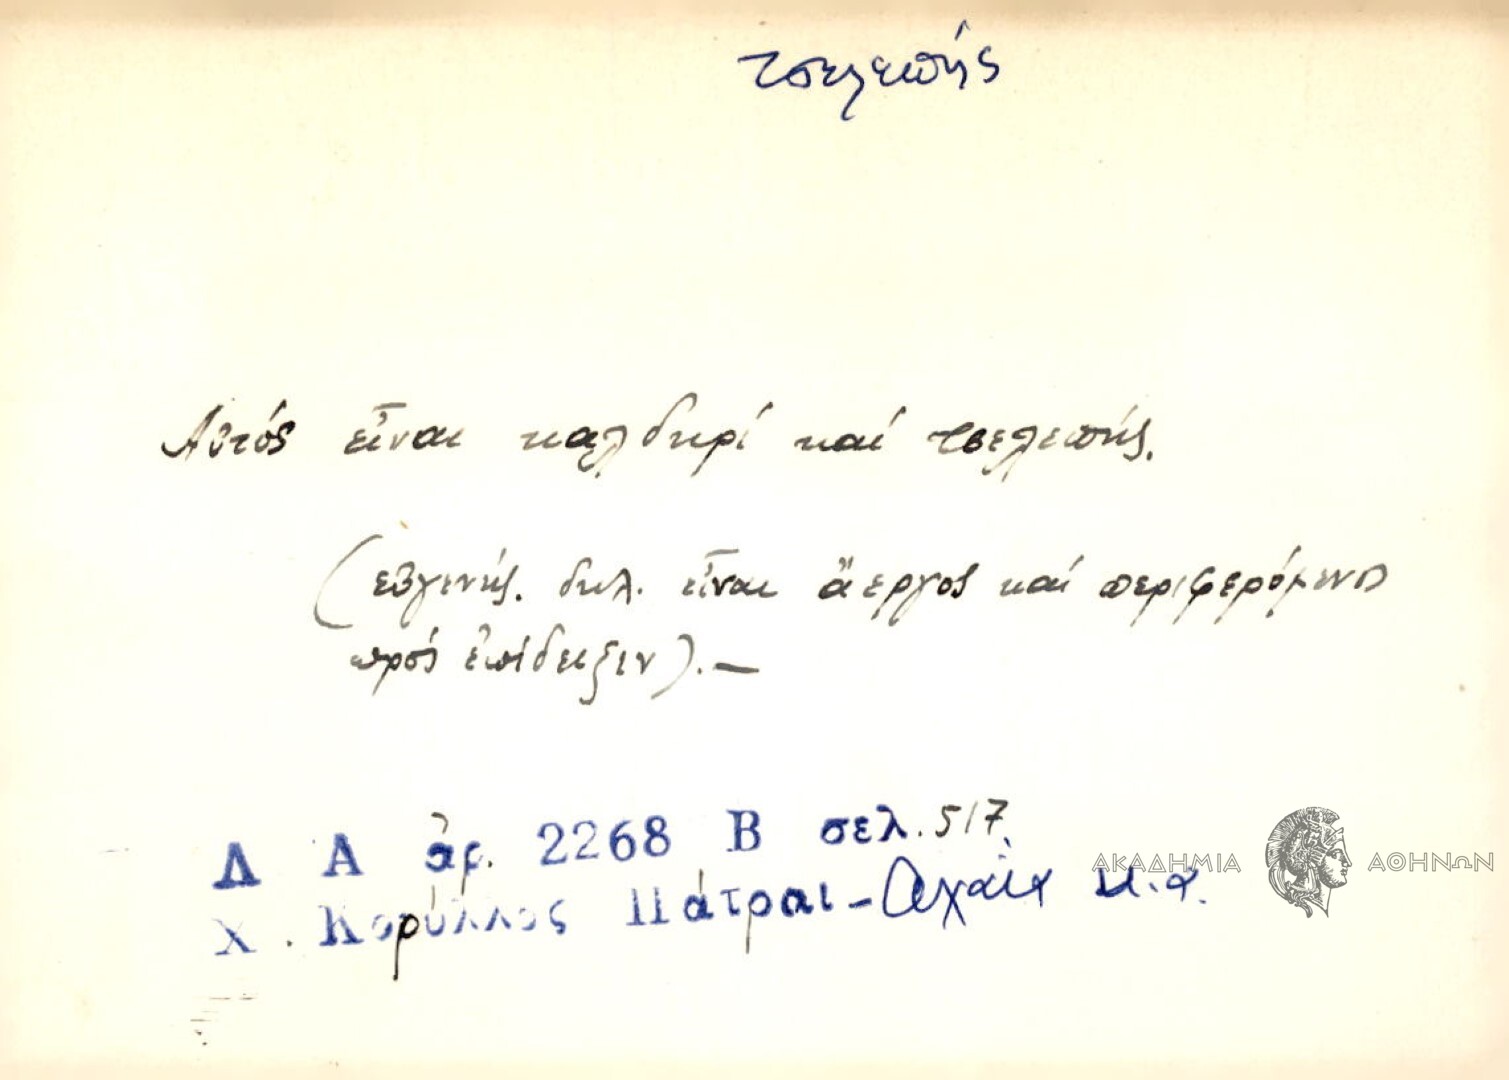 τσελεπής
Αυτός εἶναι καλδηρί καί τσελεπής.
(εὐγενής. δηλ. εἶναι ἄεργος καί περιφερόμενος
πρός ἐπίδειξιν).—
Δ Α ἀρ. 2268 Β σελ. 517
Χ. Κορύλλος Πάτραι - Ἀχαΐα κ.ἀ.
ΑΚΑΔΗΜΙΑ ΑΘΗΝΩΝ